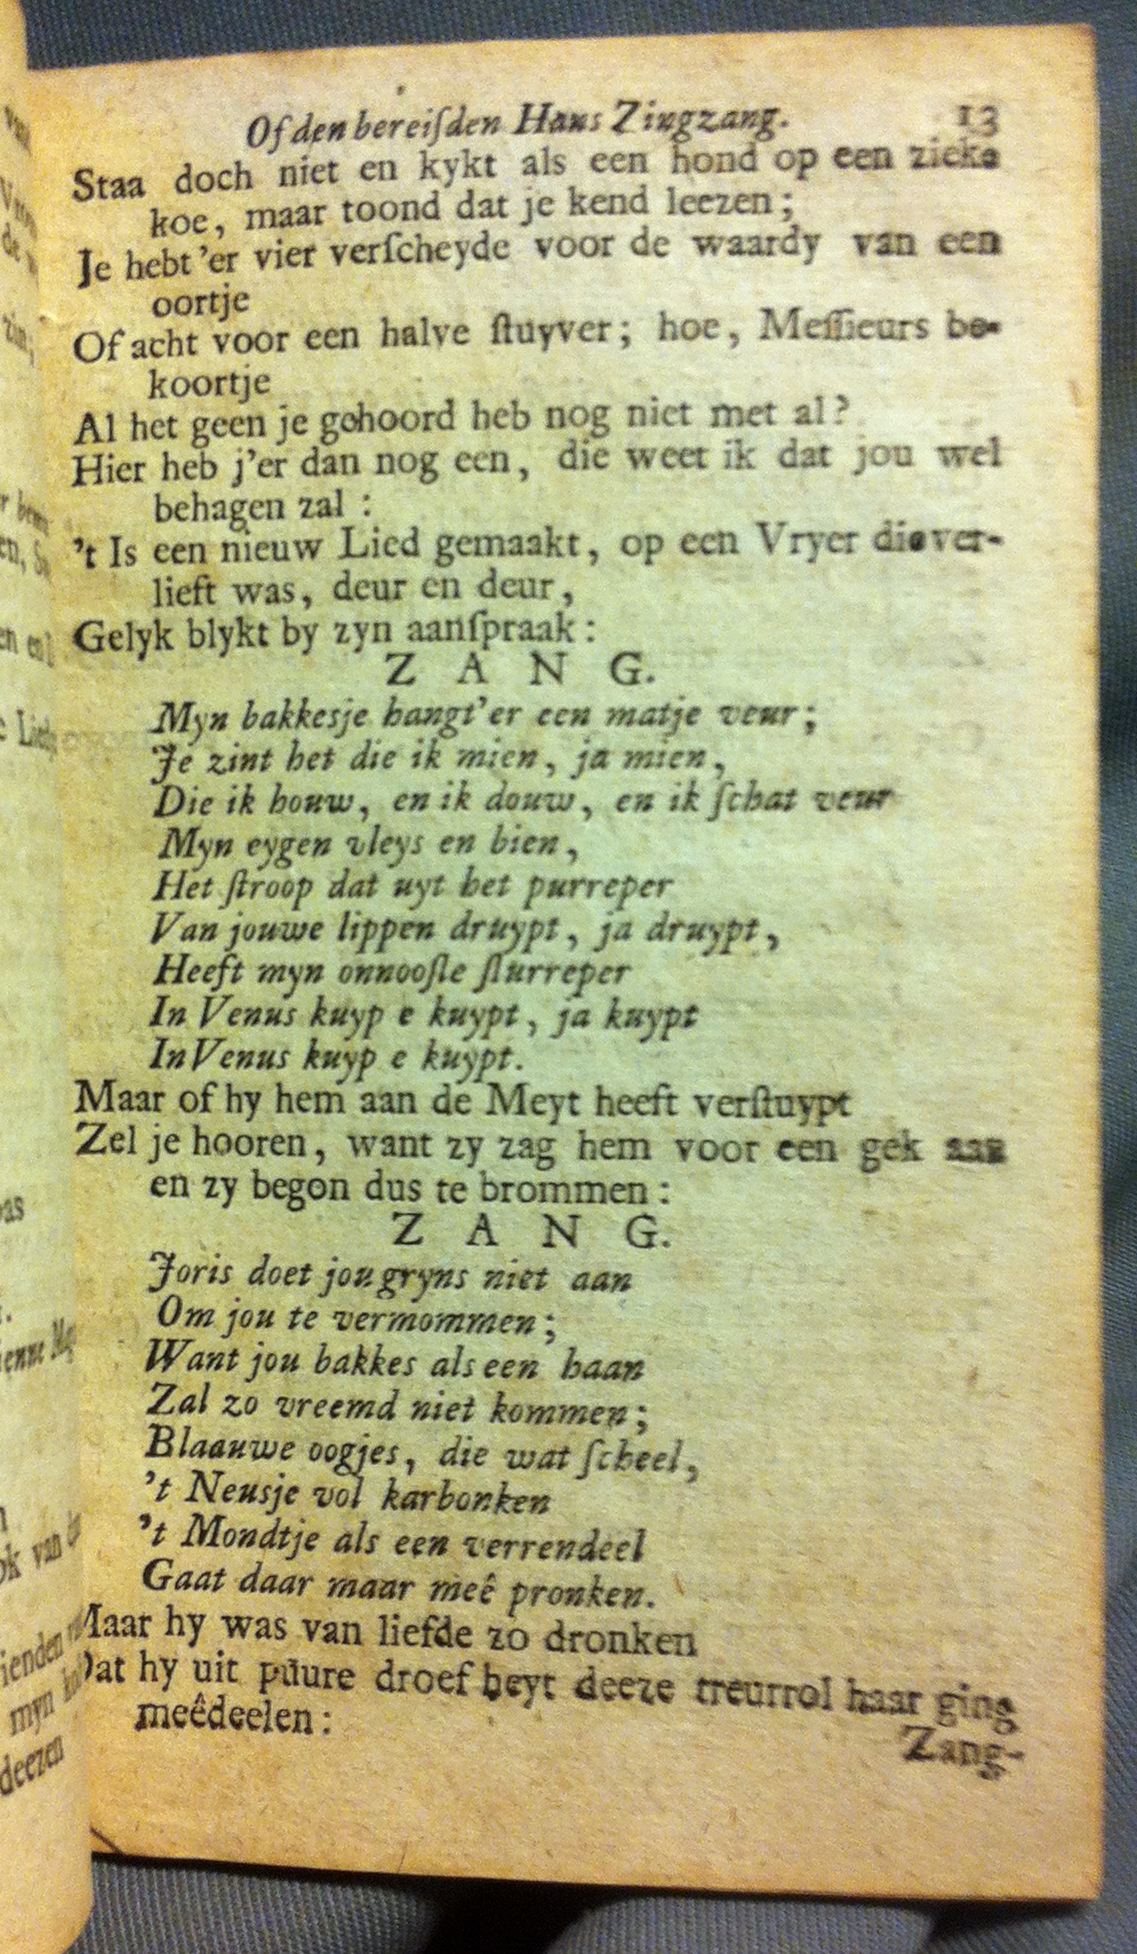 Of den bereiſden Hans Zingzang. 13
Staa doch niet en kykt als een hond op een zieke
koe, maar toond dat je kend leezen;
Je hebt 'er vier verſcheyde voor de waardy van een
oortje
Of acht voor een halve ſtuyver; hoe, Meſſieurs be-
koortje
Al het geen je gehoord heb nog niet met al?
Hier heb j'er dan nog een, die weet ik dat jou wel
behagen zal:
't Is een nieuw Lied gemaakt, op een Vryer die ver-
lieft was, deur en deur,
Gelyk blykt by zyn aanſpraak:
Z A N G.
Myn bakkesje hangt'er een matje veur;
Je zint het die ik mien, ja mien,
Die ik houw, en ik douw, en ik ſchat veur
Myn eygen vleys en bien,
Het ſtroop dat uyt het purreper
Van jouwe lippen druypt, ja druypt,
Heeft myn onnooſle ſlurreper
In Venus kuyp e kuypt, ja kuypt
In Venus kuyp e kuypt.
Maar of hy hem aan de Meyt heeft verſtuypt
Zel je hooren, want zy zag hem voor een gek aan
en zy begon dus te brommen:
Z A N G.
Joris doet jou gryns niet aan
Om jou te vermommen;
Want jou bakkes als een haan
Zal zo vreemd niet kommen;
Blaauwe oogjes, die wat ſcheel,
't Neusje vol karbonken
't Mondtje als een verrendeel
Gaat daar maar meê pronken.
Maar hy was van liefde zo dronken
Dat hy uit puure droef heyt deeze treurrol haar ging
meêdeelen:
Zang-